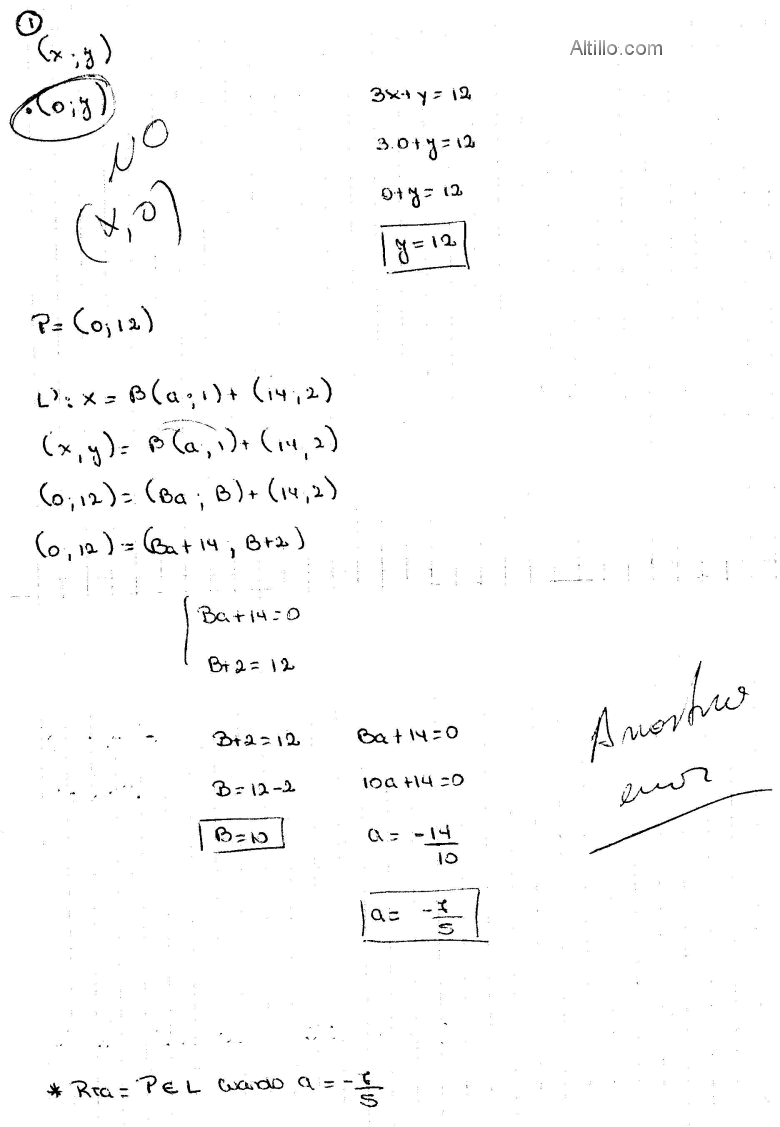 ①
Altillo.com
(x;y)
·(0;y)
NO
(x,0)
3x+y=12
3.0+y=12
0+y=12
y=12
P=(0;12)
L': x = B(a;1)+(14,2)
(x,y)= B(a,1)+(14,2)
(0;12)=(Ba; B)+(14,2)
(0,12)=(Ba+14, B+2)
Ba+14=0
B+2=12
B+2=12
B=12-2
B=10
Ba+14=0
10a+14=0
a= -14/10
a= -7/5
error
* Rta= P∈L cuando a= -7/5